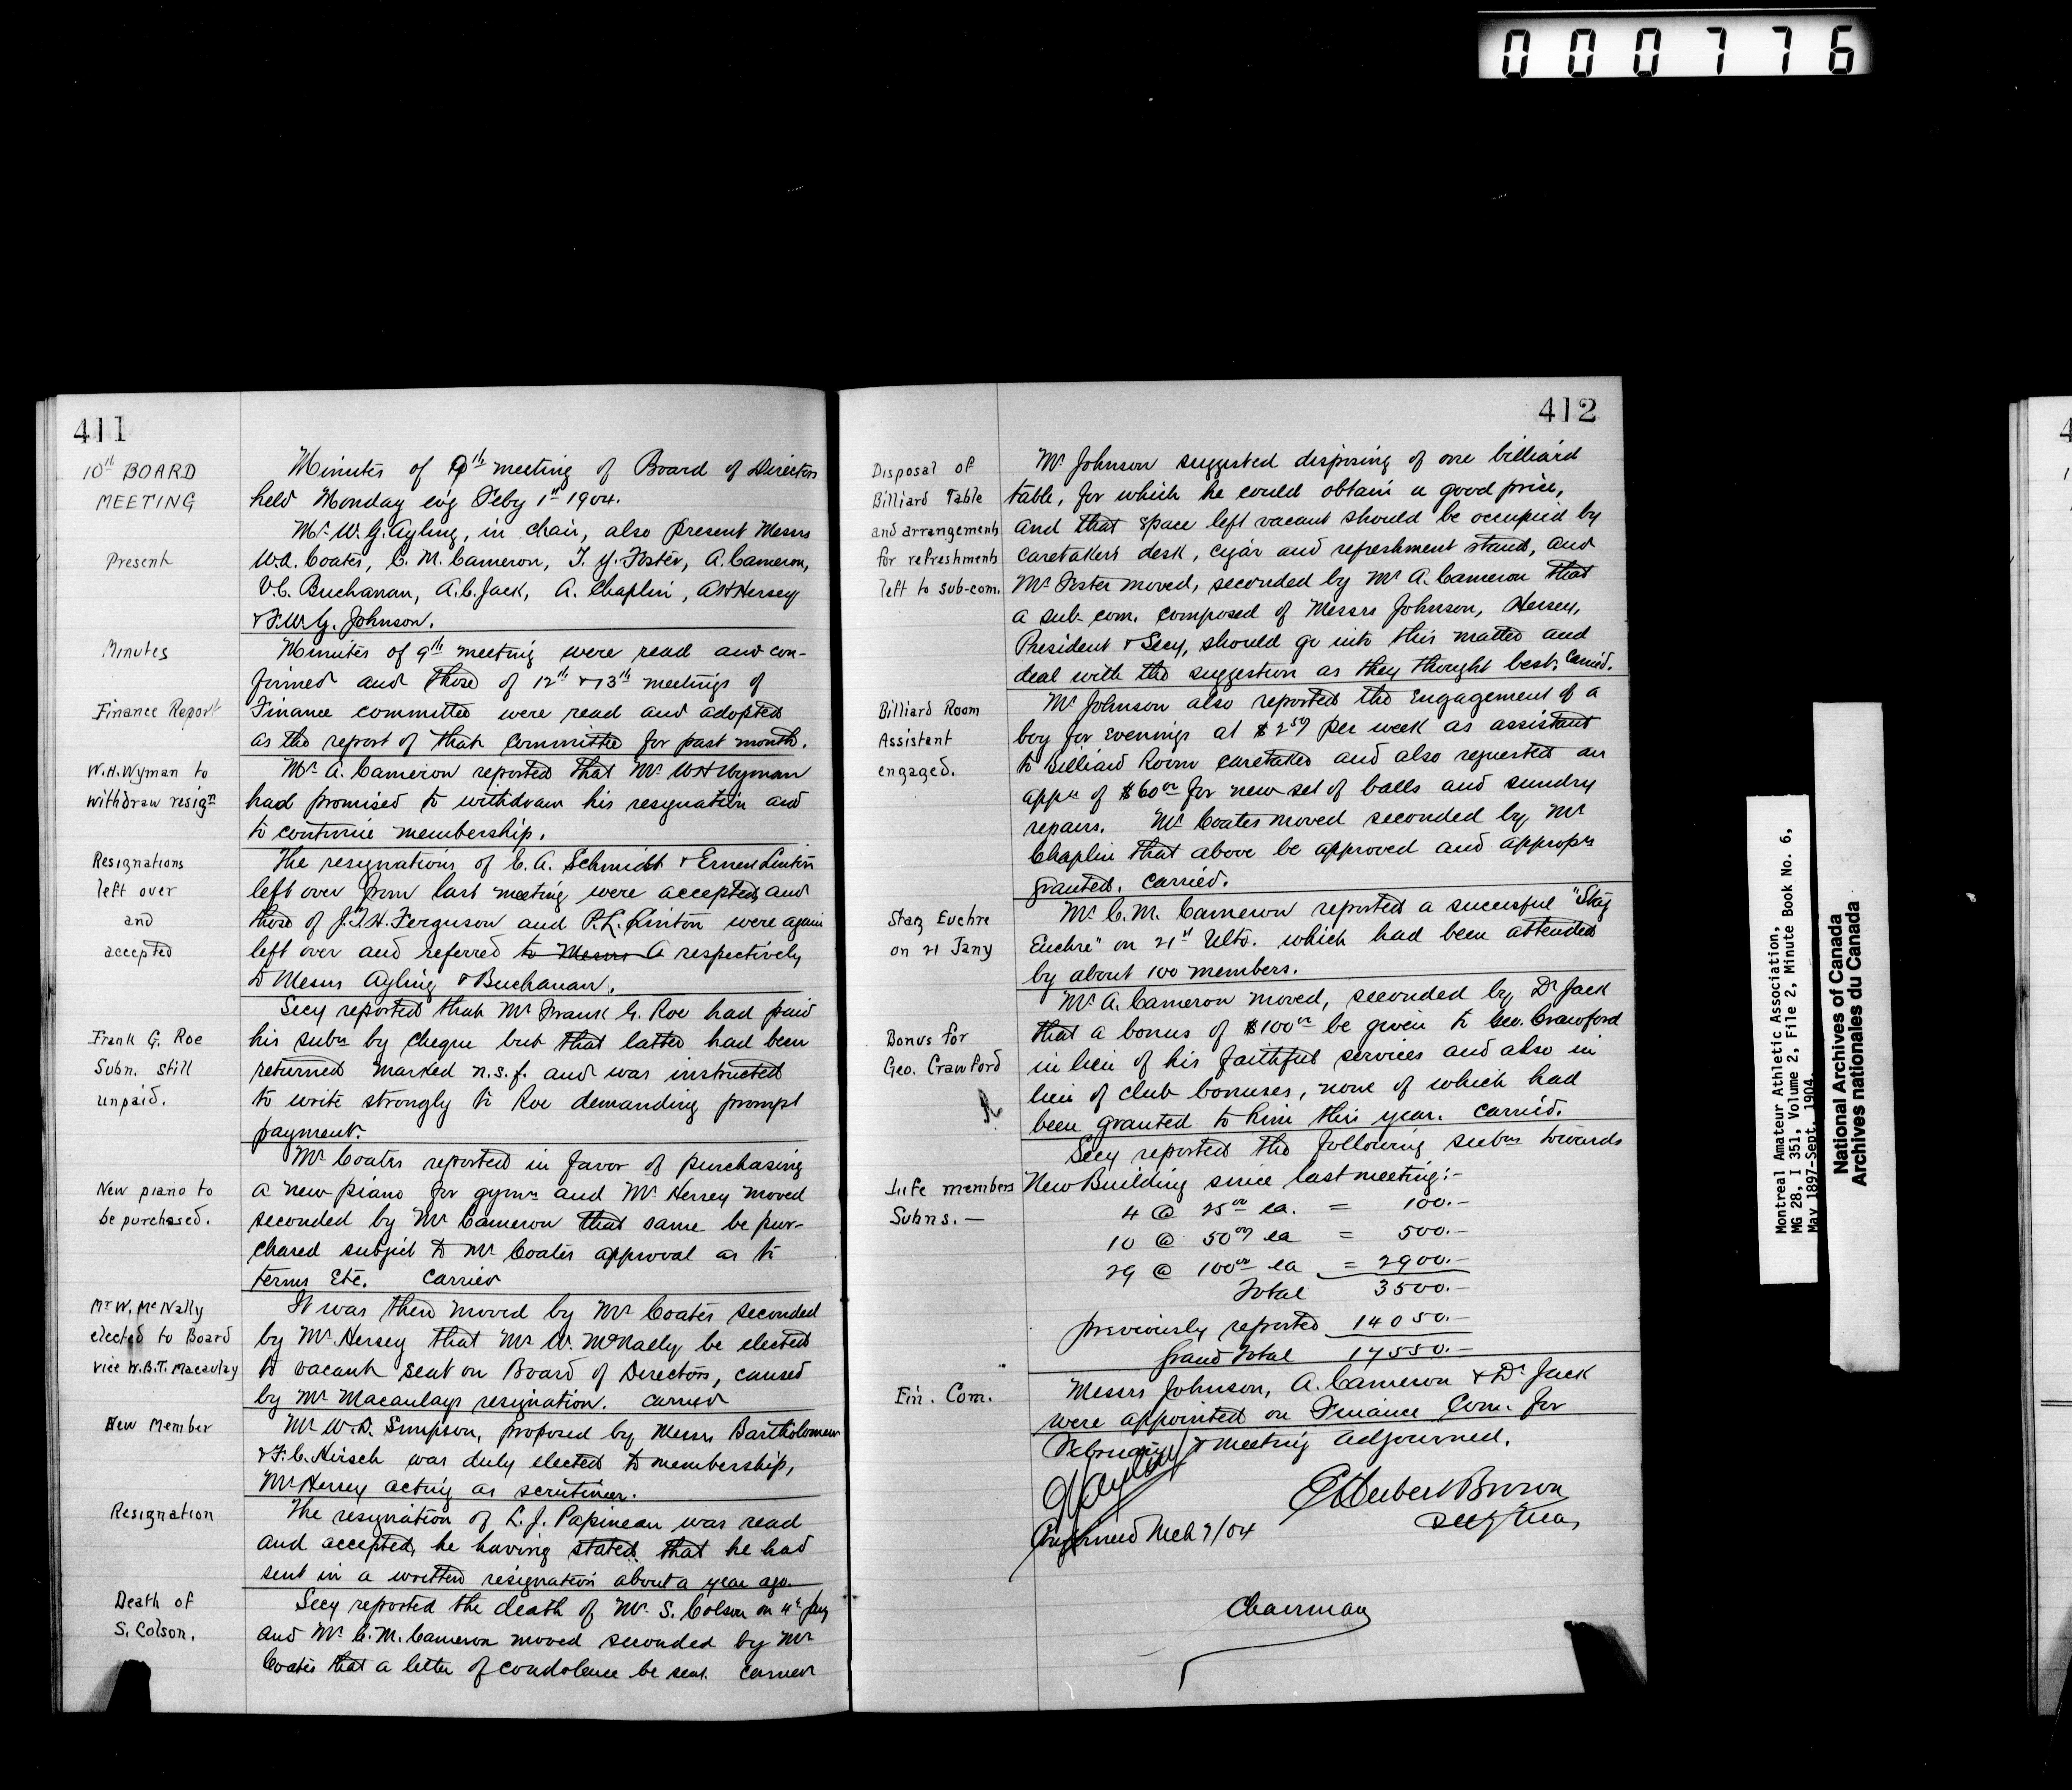 000776
411
10th BOARD
MEETING
Minutes of 9th meeting of Board of Directors
held Monday evg Feby 1st 1904.
Mr. W. G. Ayling, in chair, also present Messrs
Present
W.A. Coates, C. M. Cameron, T. Y. Foster, A. Cameron,
V.C. Buchanan, A.C. Jack, A. Chaplin, A H Hersey
& F.W.G. Johnson.
Minutes
Minutes of 9th meeting were read and con-
firmed and those of 12th & 13th meetings of
Finance Report
Finance committee were read and adopted
as the report of that committee for past month.
W.H. Wyman to
withdraw resign
Mr. A. Cameron reported that Mr. W H Wyman
had promised to withdraw his resignation and
to continue membership.
Resignations
left over
and
accepted
The resignations of C. A. Schmidt & Ernest Linton
left over from last meeting were accepted, and
those of J.T.H. Ferguson and P.L. Linton were again
left over and referred to Messrs A respectively
to Messrs Ayling & Buchanan.
Frank G. Roe
Subn. still
unpaid.
Secy reported that Mr Frank G. Roe had paid
his subn by cheque but that latter had been
returned marked n.s.f. and was instructed
to write strongly to Roe demanding prompt
payment.
New piano to
be purchased.
Mr Coates reported in favor of purchasing
a new piano for gymn and Mr Hersey moved
seconded by Mr Cameron that same be pur-
chased subject to Mr Coates approval as to
terms etc. Carried
Mr W. McNally
elected to Board
vice W.B.T. Macaulay
It was then moved by Mr Coates seconded
by Mr. Hersey that Mr W. McNally be elected
to vacant seat on Board of Directors, caused
by Mr Macaulays resignation. Carried
New Member
Mr W.D. Simpson, proposed by Messrs Bartholomew
& F.C. Hirsch was duly elected to membership,
Mr Hersey acting as scrutineer.
Resignation
The resignation of L. J. Papineau was read
and accepted, he having stated that he had
sent in a written resignation about a year ago.
Death of
S. Colson.
Secy reported the death of Mr. S. Colson on Jany
and Mr. C.M. Cameron moved seconded by Mr
Coates that a letter of condolence be sent. Carried
412
Disposal of
Billiard Table
and arrangements
for refreshments
left to sub-com.
Mr Johnson suggested disposing of one billiard
table, for which he could obtain a good price,
and that space left vacant should be occupied by
caretakers desk, cigar and refreshment stand, and
Mr Foster moved, seconded by Mr A. Cameron that
a sub-com. composed of Messrs Johnson, Hersey,
President & Secy, should go into this matter and
deal with the suggestion as they thought best. Carried.
Billiard Room
Assistant
engaged.
Mr Johnson also reported the engagement of a
boy for evenings at $2 50 per week as assistant
to Billiard Room caretaker and also requested an
appn of $60 00 for new set of balls and sundry
repairs. Mr Coates moved seconded by Mr
Chaplin that above be approved and appropn
granted. Carried.
Stag Euchre
on 21 Jany
Mr C. M. Cameron reported a sucessful "Stag
Euchre" on 21st Ulto. which had been attended
by about 100 members.
Bonus for
Geo. Crawford
Mr A. Cameron moved, seconded by Dr Jack
that a bonus of $100 00 be given to Geo. Crawford
in lieu of his faithful services and also in
lieu of club bonuses, none of which had
been granted to him this year. Carried.
Life members
Subns. —
Secy reported the following subns towards
New Building since last meeting:-
4 @ 25 00 ea. = 100.-
10 @ 50 00 ea = 500.-
29 @ 100 00 ea = 2900.-
Total 3500.-
previously reported 14050.-
Grand Total 17550.-
Fin. Com.
Messrs Johnson, A. Cameron & Dr Jack
were appointed on Finance Com. for
February & meeting adjourned.
Herbert Brown
Secy Treas,
Confirmed Mch 7/04
Chairman
Montreal Amateur Athletic Association,
MG 28, I 351, Volume 2, File 2, Minute Book No. 6,
May 1897-Sept. 1904.
National Archives of Canada
Archives nationales du Canada